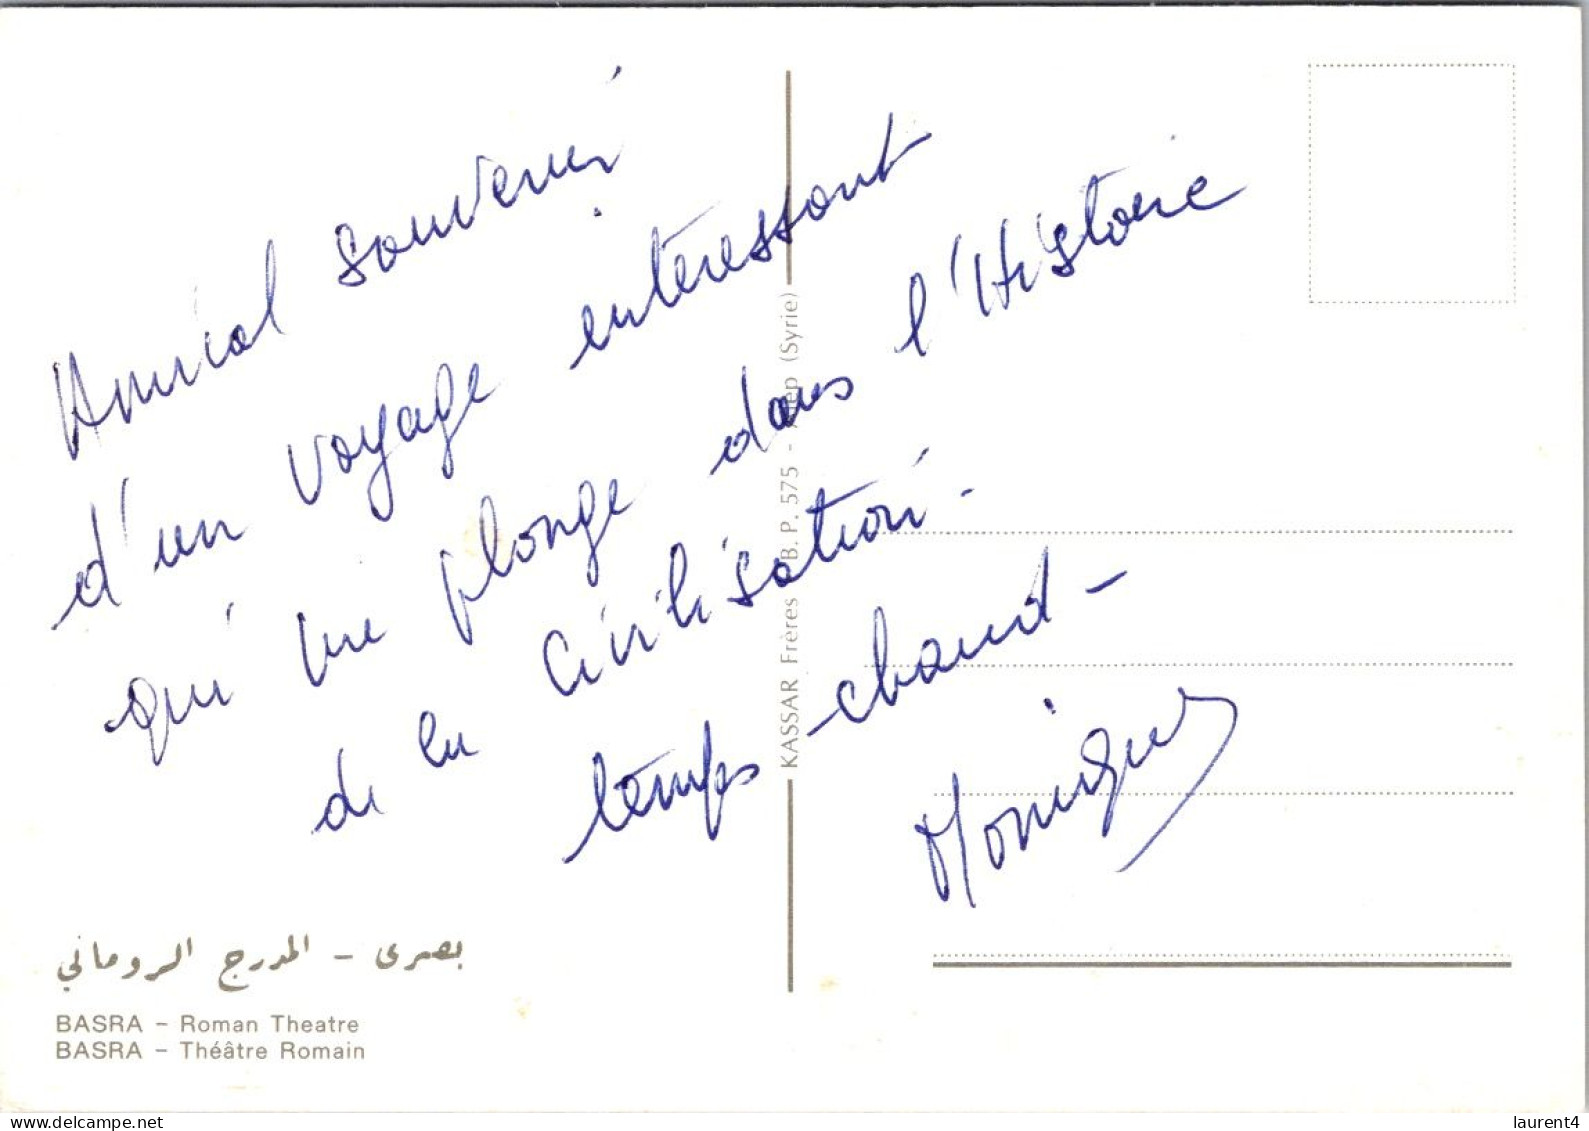 Amical souvenir
d'un voyage intéressant
qui me plonge dans l'Histoire
de la civilisation.
temps chaud -
Monique
KASSAR Frères B. P. 575 - Alep (Syrie)
بصرى - المدرج الروماني
BASRA - Roman Theatre
BASRA - Théâtre Romain
www.delcampe.net
laurent4